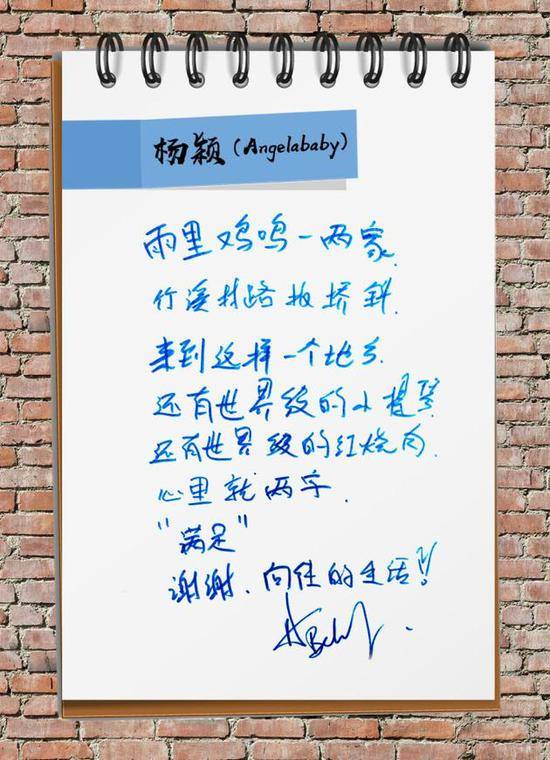 杨颖（Angelababy）
雨里鸡鸣一两家.
竹溪村路板桥斜.
来到这样一个地方.
还有世界级的小提琴
还有世界级的红烧肉.
心里就两字.
"满足"
谢谢.向往的生活!!